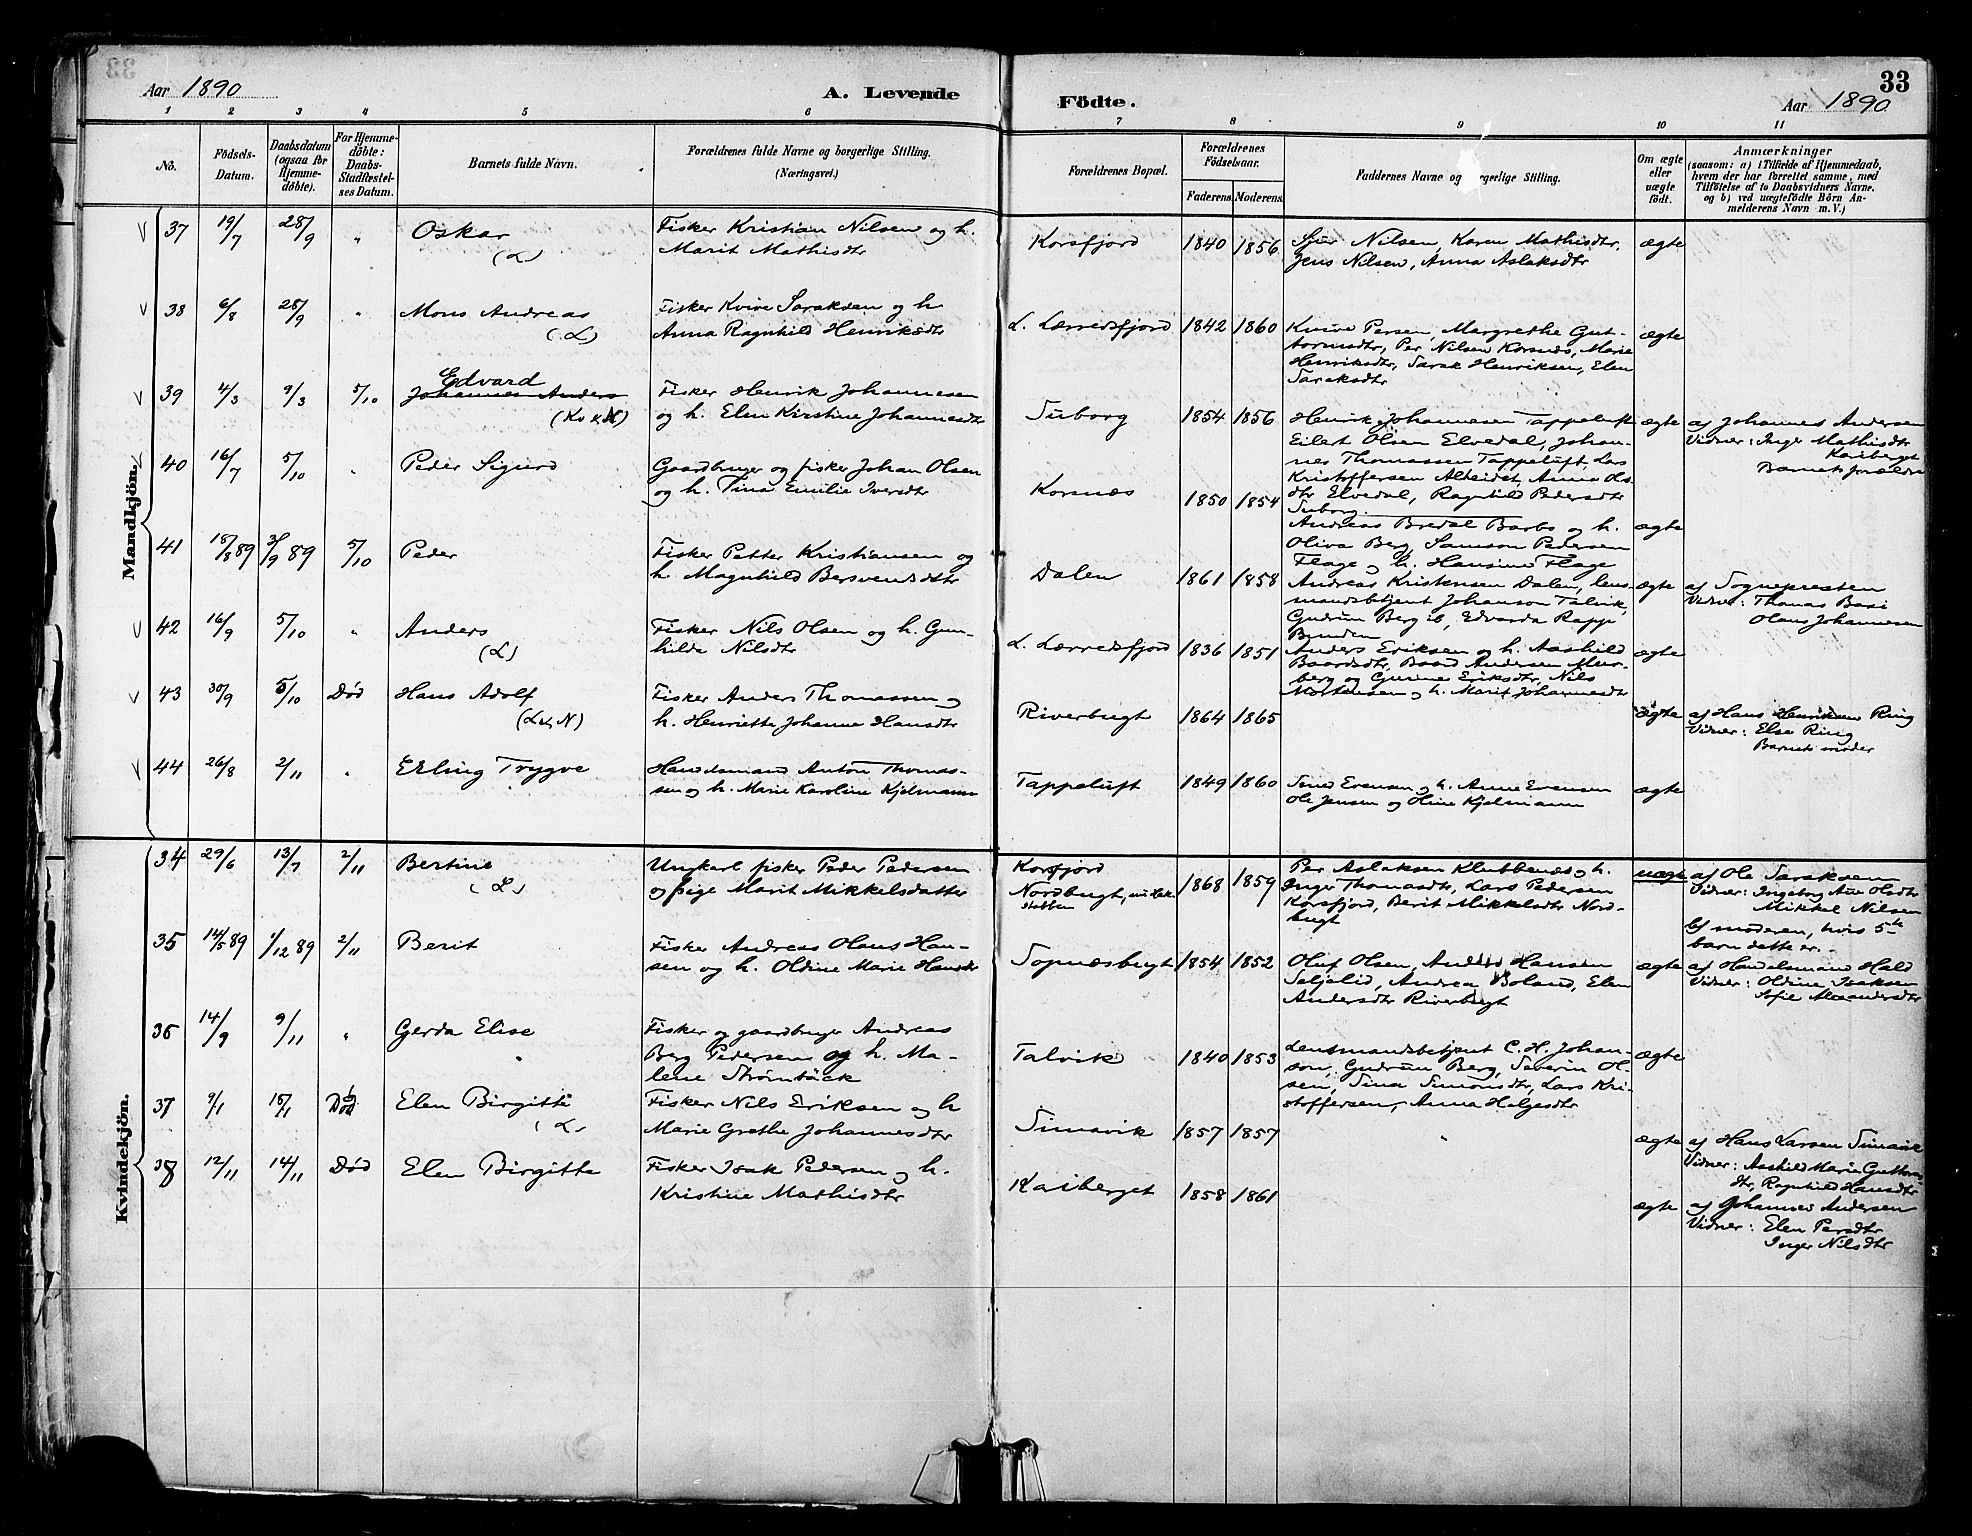 33
Aar 1890
A. Levende
Födte.
Aar 1890
1 2 3 4 5 6 7 8 9 10 11
No.
Födsels-
Datum.
Daabsdatum
(ogsaa for
Hjemme-
döbte).
For Hjemme-
döbte:
Daabs-
Stadfestel-
ses Datum.
Barnets fulde Navn.
Forældrenes fulde Navne og borgerlige Stilling.
(Næringsvei.)
Forældrenes Bopæl.
Forældrenes
Födselsaar.
Faderens Moderens
Faddernes Navne og borgerlige Stilling.
Om ægte
eller
uægte
födt.
Anmærkninger
(saasom: a) i Tilfælde af Hjemmedaab,
hvem der har forrettet samme, med
Tilföielse af to Daabsvidners Navne.
og b) ved uægtefödte Börn An-
melderens Navn m. V.)
Mandkjön.
37 19/7 28/9 " Oskar
(L)
Fisker Kristian Nilsen og h.
Marit Mathisdtr
Korsfjord 1840 1856
Sjur Nilsen, Karen Mathisdtr,
Jens Nilsen, Anna Aslaksdtr
ægte
38 6/8 28/9 " Mons Andreas
(L)
Fisker Kvive Saraksen og h
Anna Ragnhild Henriksdtr
L. Lærredsfjord 1842 1860
Kvive Persen, Margrethe Gut-
tormsdtr, Per Nilsen Korsnes, Marie
Henriksdtr, Sarak Henriksen, Elen
Saraksdtr
ægte
39 4/3 9/3 5/10 Edvard
Johannes Anders
(Kv & N)
Fisker Henrik Johannesen
og h. Elen Kirstine Johannesdtr
Tuborg 1854 1856
Henrik Johannesen Tappeluft
Eilert Olsen Elvedal, Johan-
nes Thomassen Tappeluft, Lars
Kristoffersen Alteidet, Anna Ols-
dtr Elvedal, Ragnhild Pedersdtr
Tuborg
ægte
af Johannes Andersen
Vidner: Inger Mathisdtr
Kaiberget
Barnets forældre
40 16/7 5/10 " Peder Sigurd
Gaardbruger og fisker Johan Olsen
og h. Tina Emilie Iversdtr
Korsnæs 1850 1854
Andreas Bredal Barbo og h.
Oliva Berg, Samson Pedersen
Flage og h. Hansine Flage
ægte
41 18/8 89 3/9 89 5/10 Peder
Fisker Petter Kristiansen og
h. Magnhild Bersvendsdtr
Dalen 1861 1858
Andreas Kristensen Dalen, lens-
mandsbetjent Johanson Talvik,
Gudrun Berg ib, Edvarda Rapp
ægte
af Sognepresten
Vidner: Thomas Basi
Olaus Johannesen
42 16/9 5/10 " Anders
(L)
Fisker Nils Olsen og h. Gun-
hilda Nilsdtr
L. Lærredsfjord 1836 1851
Anders Eriksen og h. Aashild
Baardsdtr, Baard Andersen Mur-
berg og Gunine Eriksdtr, Nils
Mortensen og h. Marit Johannesdtr
ægte
43 30/9 5/10 Død Hans Adolf
(L & N)
Fisker Anders Thomassen og
h. Henriette Johanna Hansdtr
Riverbugt 1864 1865
ægte
af Hans Henriksen Ring
Vidner: Else Ring
Barnets moder
44 26/8 2/11 " Erling Trygve
Handelsmand Anton Thomas-
sen og h. Marie Karoline Kjelmann
Tappeluft 1849 1860
Svend Evensen og h. Anne Evensen
Ole Jensen og Oline Kjelmann
ægte
Kvindekjön.
34 29/6 13/7 2/11 Bertine
(L)
Ungkarl fisker Peder Pedersen
og pige Marit Mikkelsdatter
Korsfjord
Nordbugt,
1868 1859
Per Aslaksen Klubbenes og h.
Inger Thomasdtr, Lars Pedersen
Korsfjord, Berit Mikkelsdtr Nord-
bugt
uægte
af Ole Saraksen
Vidner: Ingeborg Ane Olsdtr
Mikkel Nilsen
b) moderen, hvis 5te
barn dette er.
35 14/5 89 1/12 89 2/11 Berit
Fisker Andreas Olaus Han-
sen og h. Oldine Marie Hansdtr
Sopnæsbugt 1854 1852
Oluf Olsen, Anders Hansen
Seljelid, Andrea Boland, Elen
Andersdtr Riverbugt
ægte
af Handelsmand Hald
Vidner: Oldine Isaksen
Sofie Alexandersdtr
36 14/9 9/11 " Gerda Elise
Fisker og gaardbruger Andreas
Berg Pedersen og h. Ma-
lene Strømbäck
Talvik 1840 1853
Lensmandsbetjent C. H. Johan-
son, Gudrun Berg, Severin Ol-
sen, Sina Simonsdtr, Lars Kri-
stoffersen, Anna Helgesdtr
ægte
37 9/1 15/1 Død Elen Birgitte
(L)
Fisker Nils Eriksen og h
Marie Grethe Johannesdtr
Simavik 1857 1857 "
ægte
af Hans Larsen Simavik
Vidner: Aashild Marie Guttorms
dtr, Ragnhild Hansdtr
38 12/11 14/11 Død Elen Birgitte
Fisker Isak Pedersen og h.
Kristine Mathisdtr
Kaiberget 1858 1861
ægte
af Johannes Andersen
Vidner: Elen Persdtr
Inger Nilsdtr